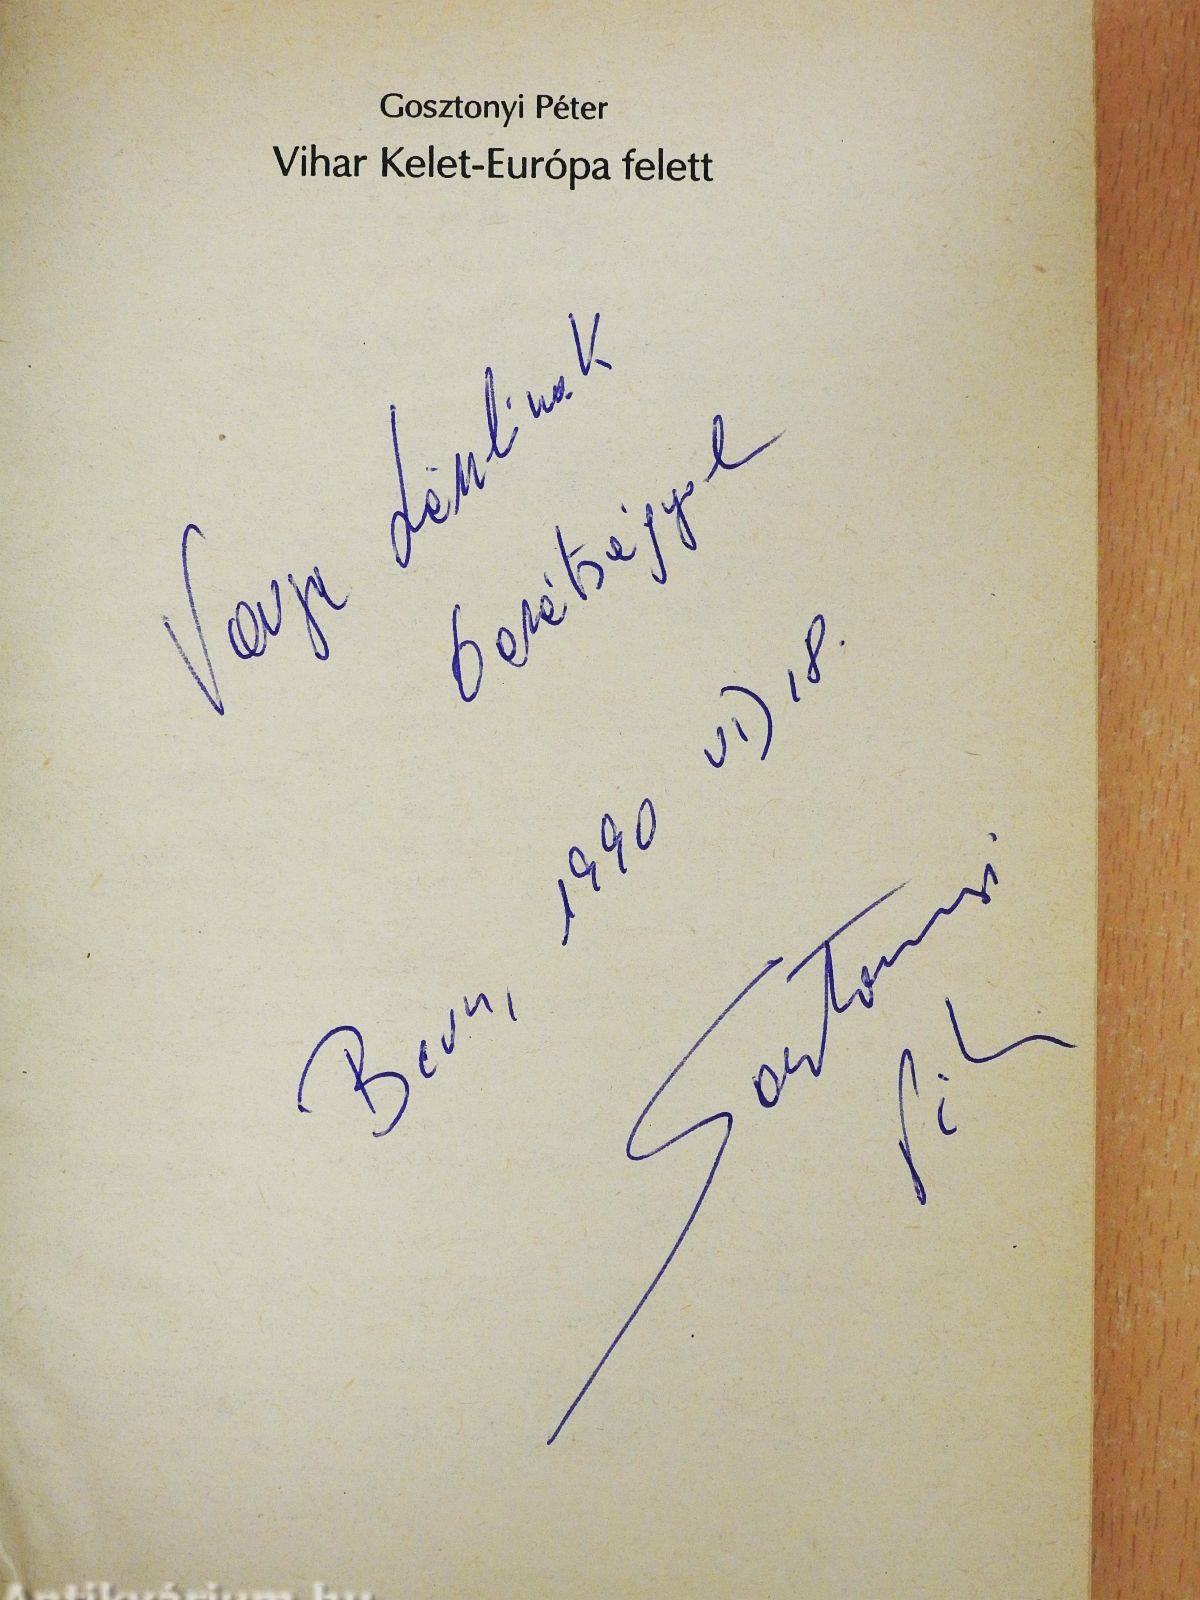 Gosztonyi Péter
Vihar Kelet-Európa felett
Varga Lászlónak
barátsággal
Bern, 1990 VI) 18.
Gosztonyi
Péter
Antikvárium.hu